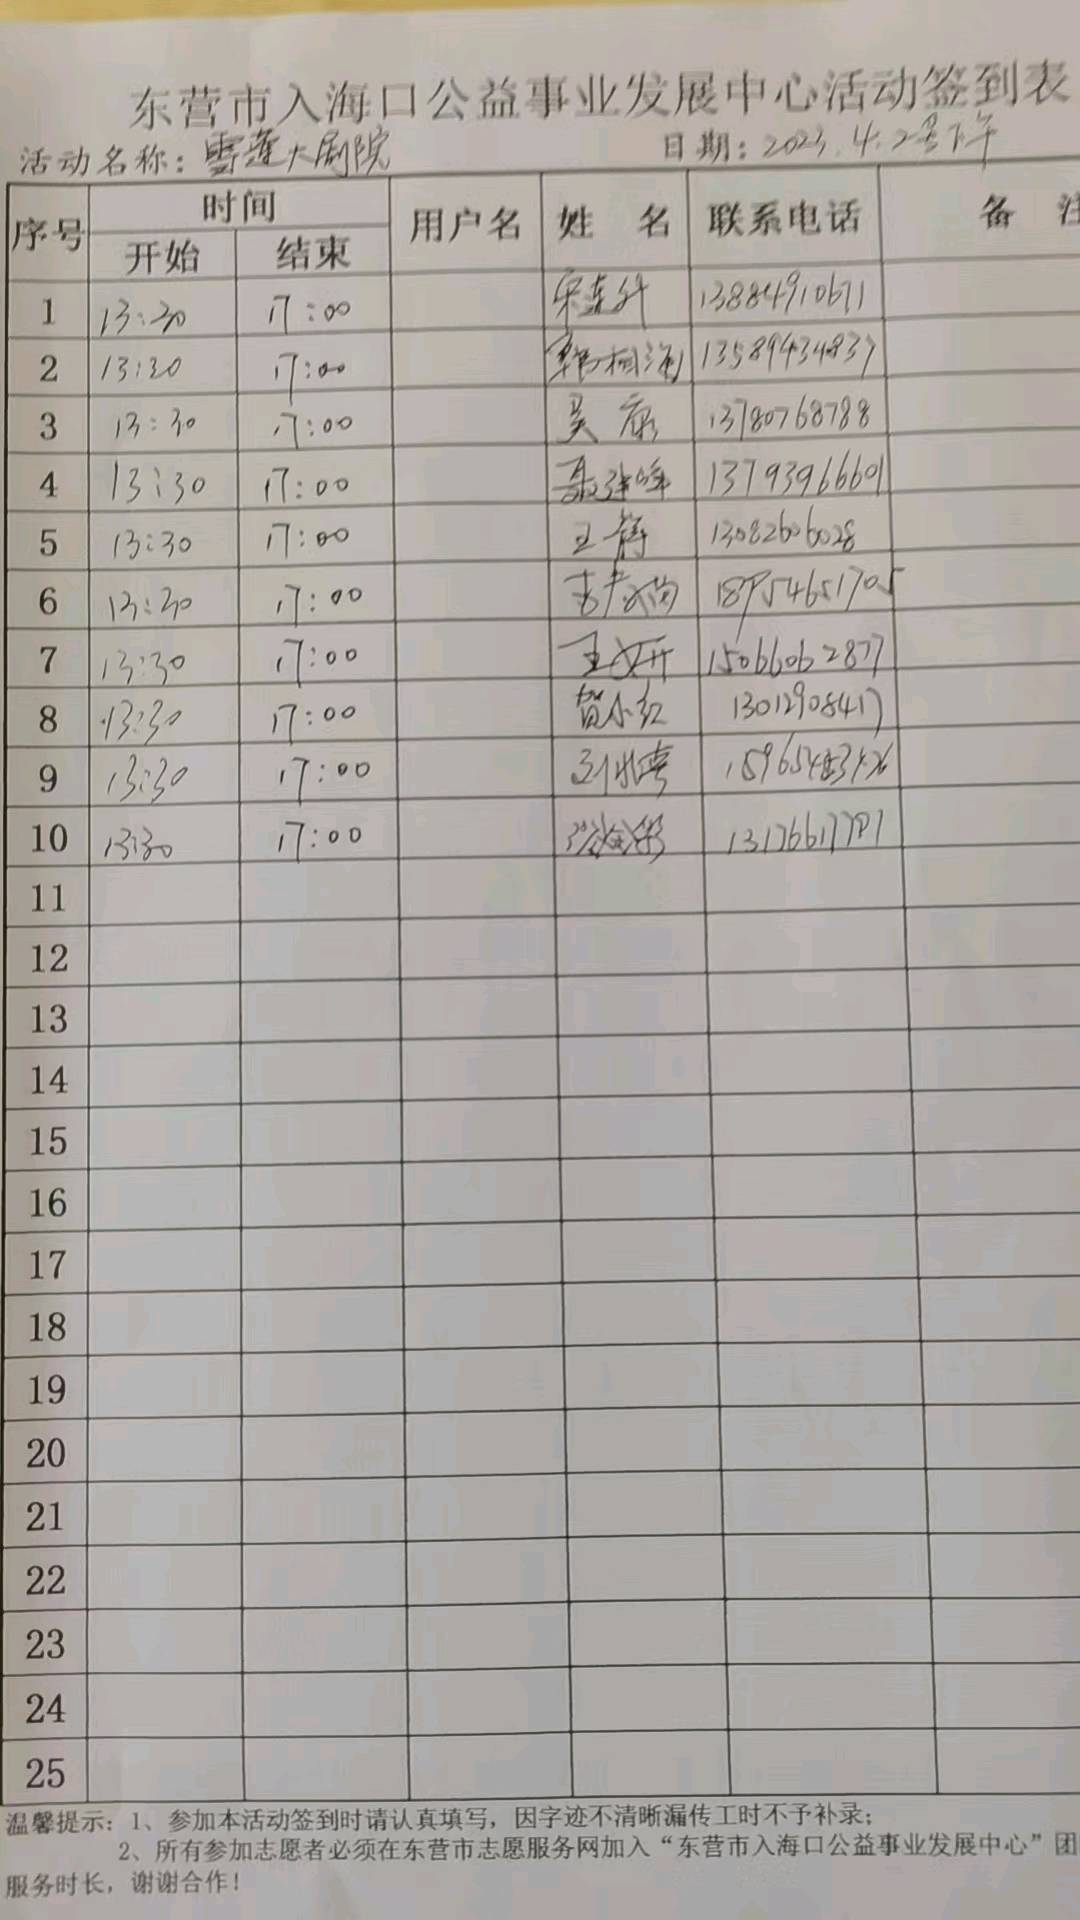 东营市入海口公益事业发展中心活动签到表
活动名称：雪莲大剧院 日期：2023.4.2号下午
序号 时间 用户名 姓 名 联系电话 备 注
开始 结束
1 13:30 17:00 宋连升 13884910671
2 13:30 17:00 13589434837
3 13:30 17:00 吴康 13780768788
4 13:30 17:00 13793966601
5 13:30 17:00 王静 13082606028
6 13:30 17:00 18954651705
7 13:30 17:00 王文开 15066062877
8 13:30 17:00 贺小红 13012908417
9 13:30 17:00
10 13:30 17:00
11
12
13
14
15
16
17
18
19
20
21
22
23
24
25
温馨提示：1、参加本活动签到时请认真填写，因字迹不清晰漏传工时不予补录；
2、所有参加志愿者必须在东营市志愿服务网加入“东营市入海口公益事业发展中心”团
服务时长，谢谢合作！